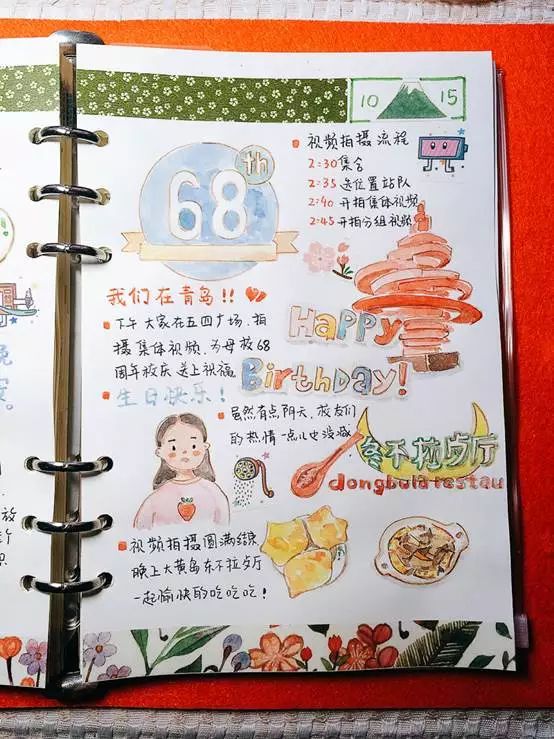 10 15
68th
视频拍摄流程
2:30集合
2:35 选位置站队
2:40 开拍集体视频
2:45 开拍分组视频
我们在青岛!!
Happy
Birthday!
下午大家在五四广场,拍
摄集体视频,为母校68
周年校庆送上祝福
生日快乐!
虽然有点阴天,校友们
的热情一点儿也没减
冬不拉餐厅
dongbularestau
视频拍摄圆满结束
晚上大黄岛冬不拉餐厅
一起愉快的吃吃吃!